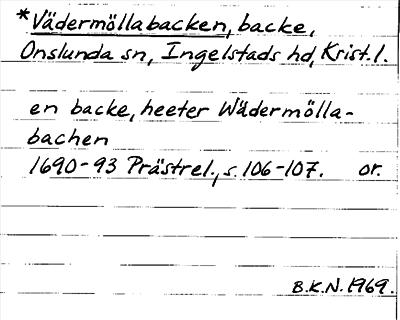 *Vädermöllabacken, backe,
Onslunda sn, Ingelstads hd, Krist. l.
en backe, heeter Wädermölla-
bachen
1690-93 Prästrel., s. 106-107. or.
B.K.N. 1969.